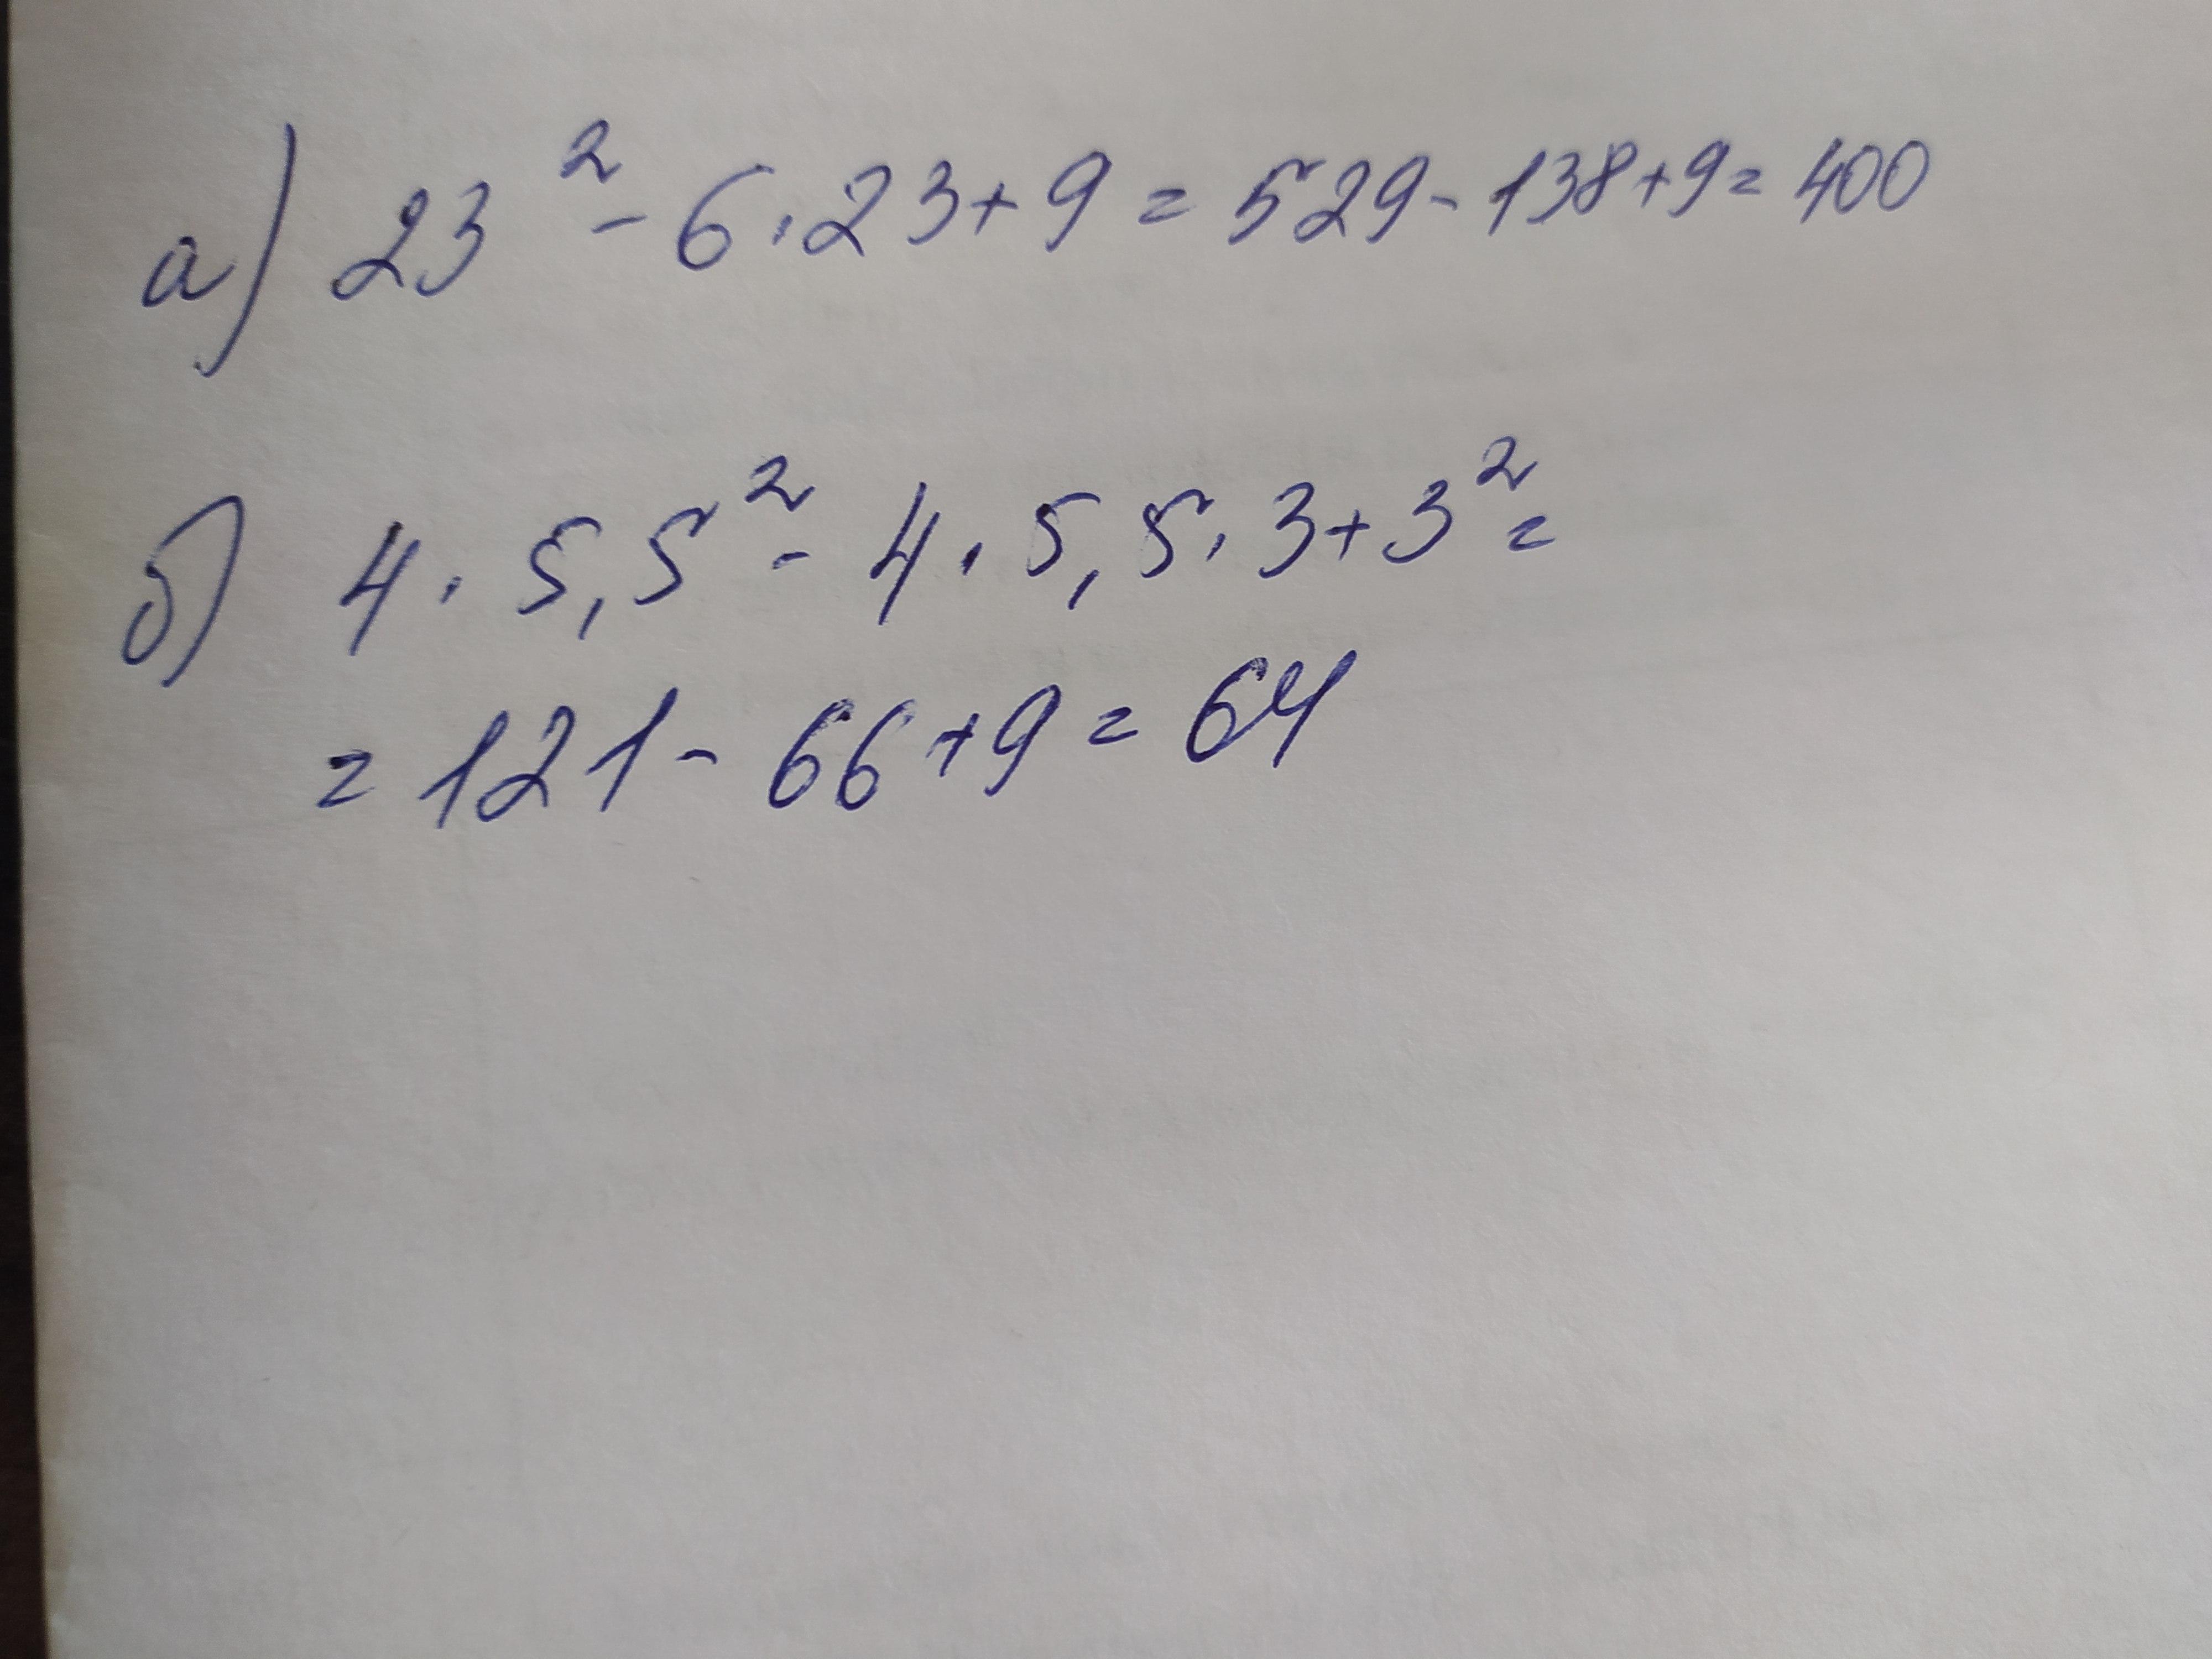 а) 23² - 6 · 23 + 9 = 529 - 138 + 9 = 400
б) 4 · 5,5² - 4 · 5,5 · 3 + 3² =
= 121 - 66 + 9 = 64